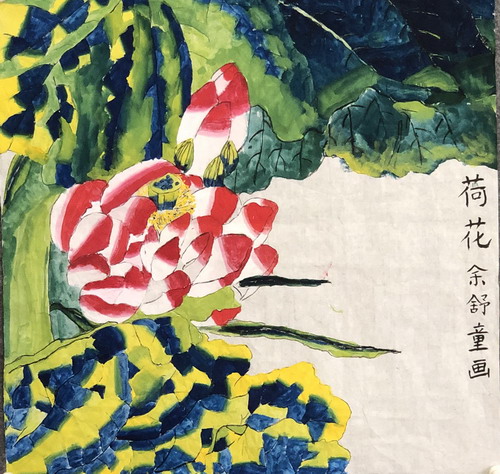 荷花余舒童画